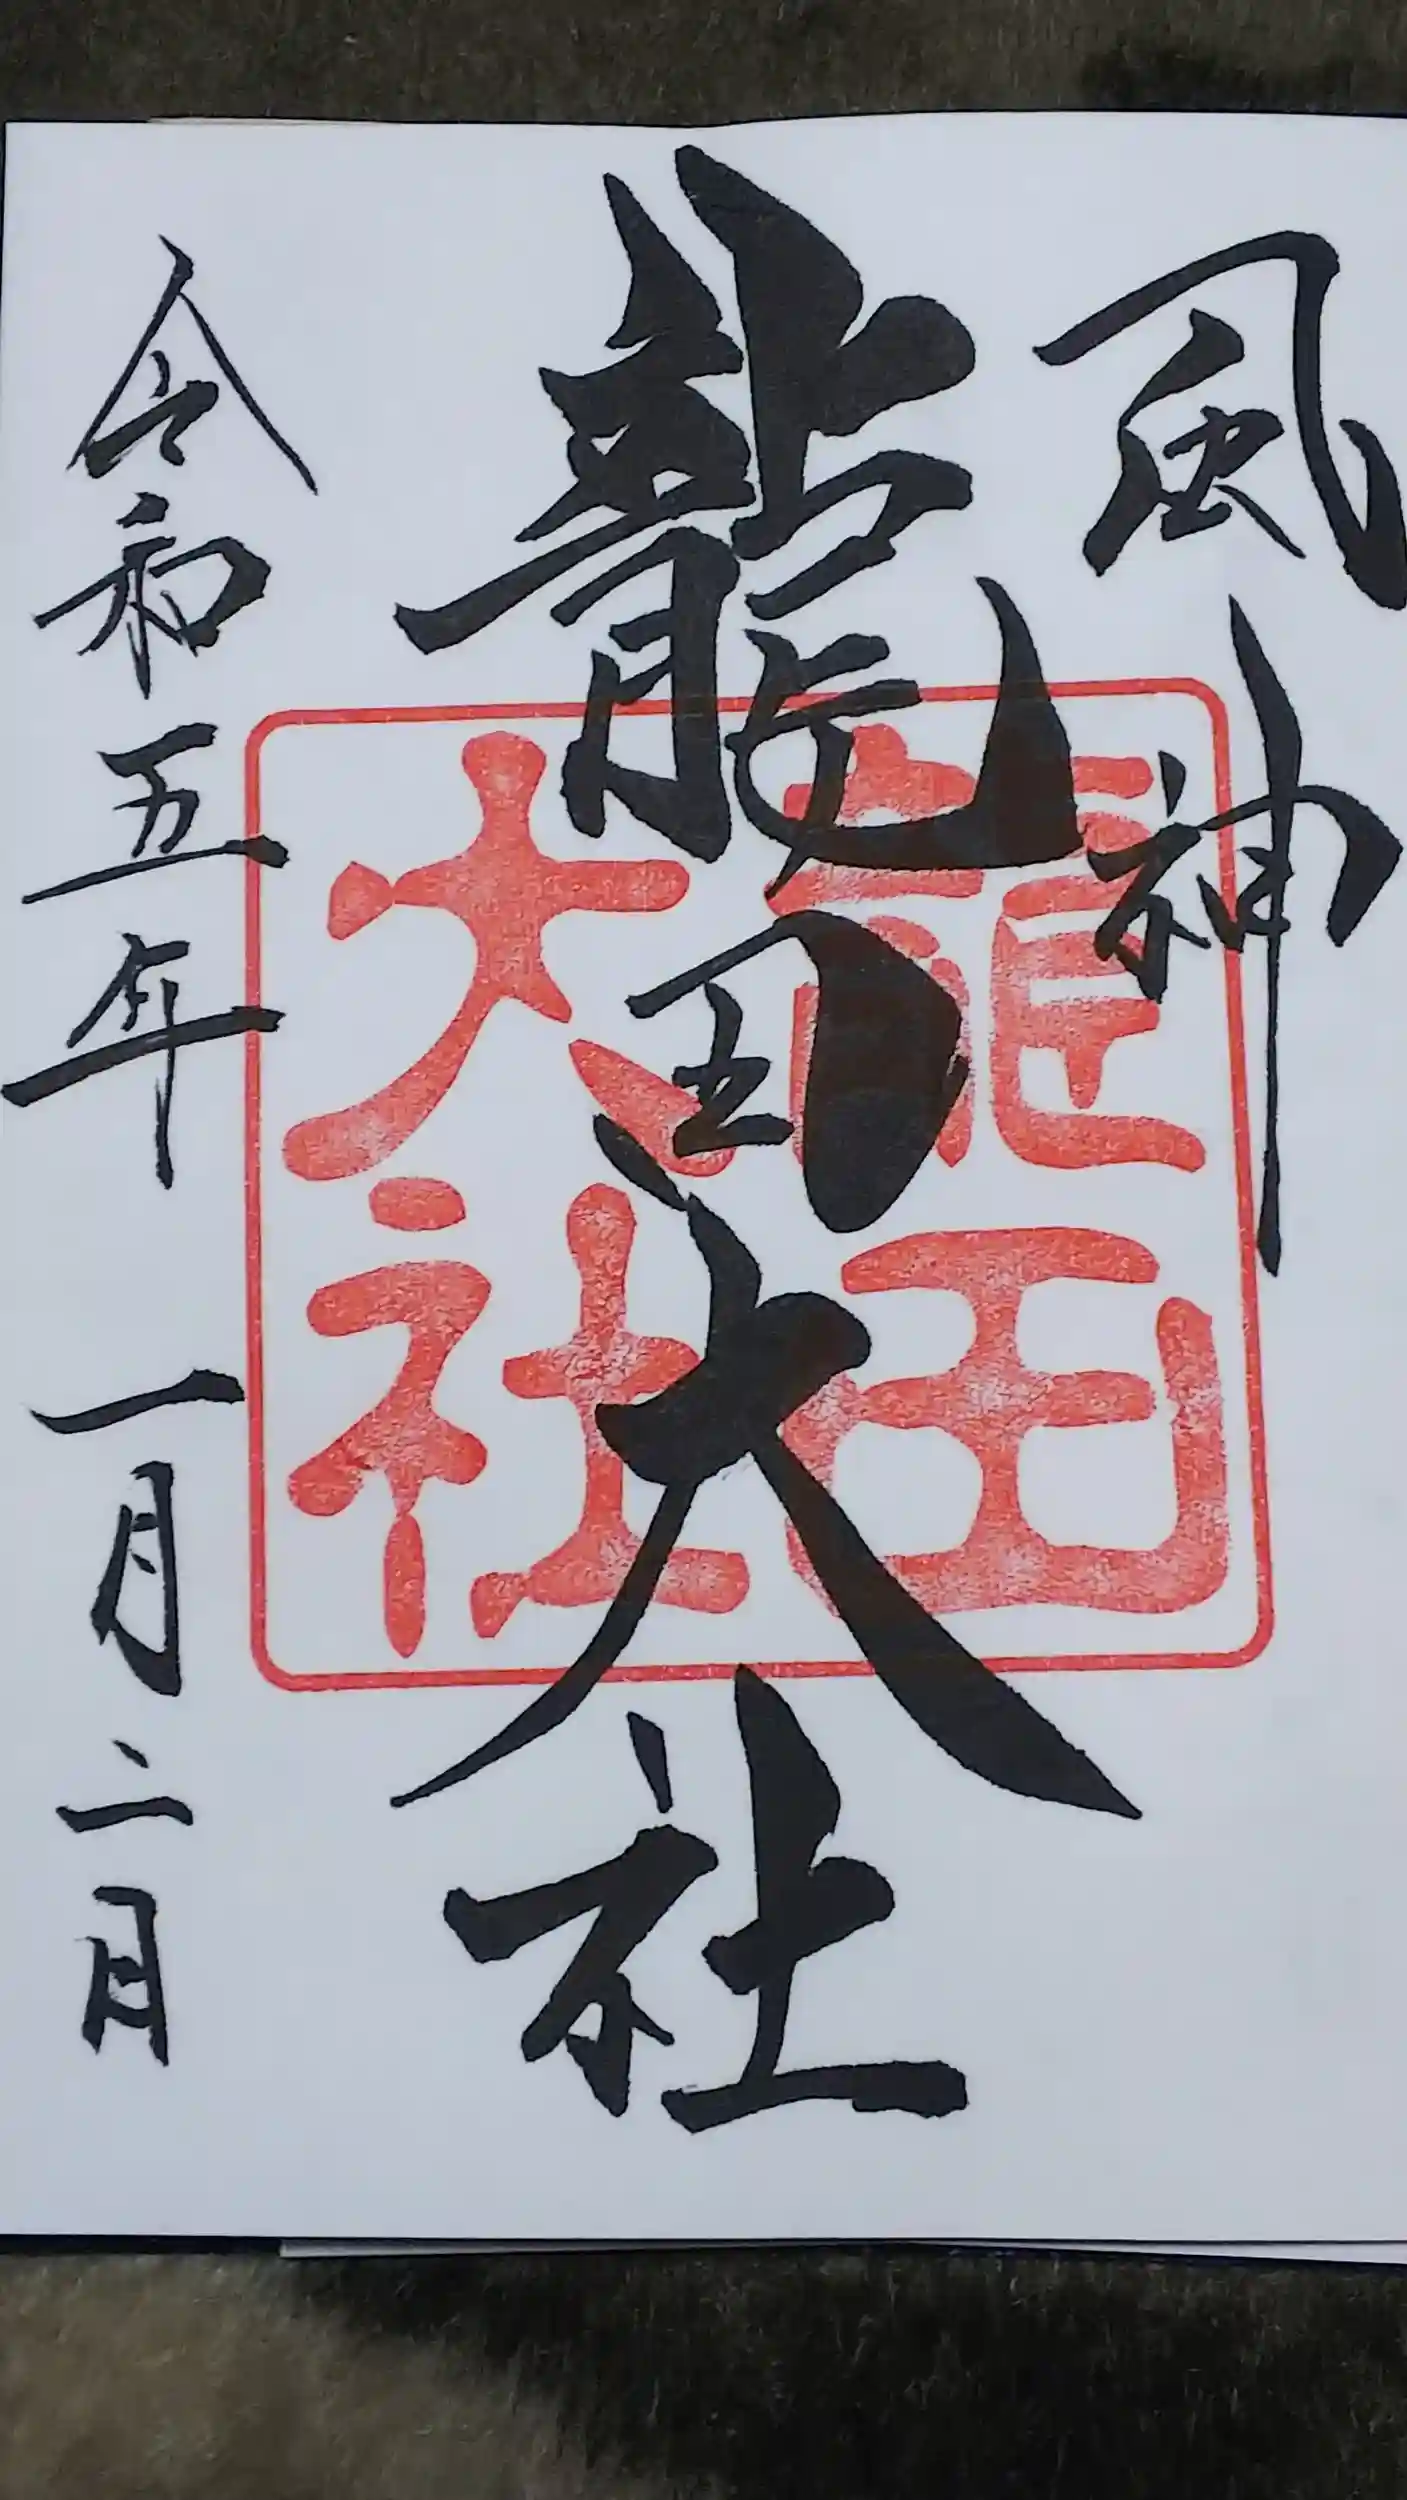 風神
龍田大社
龍田
大社
令和五年 一月二日